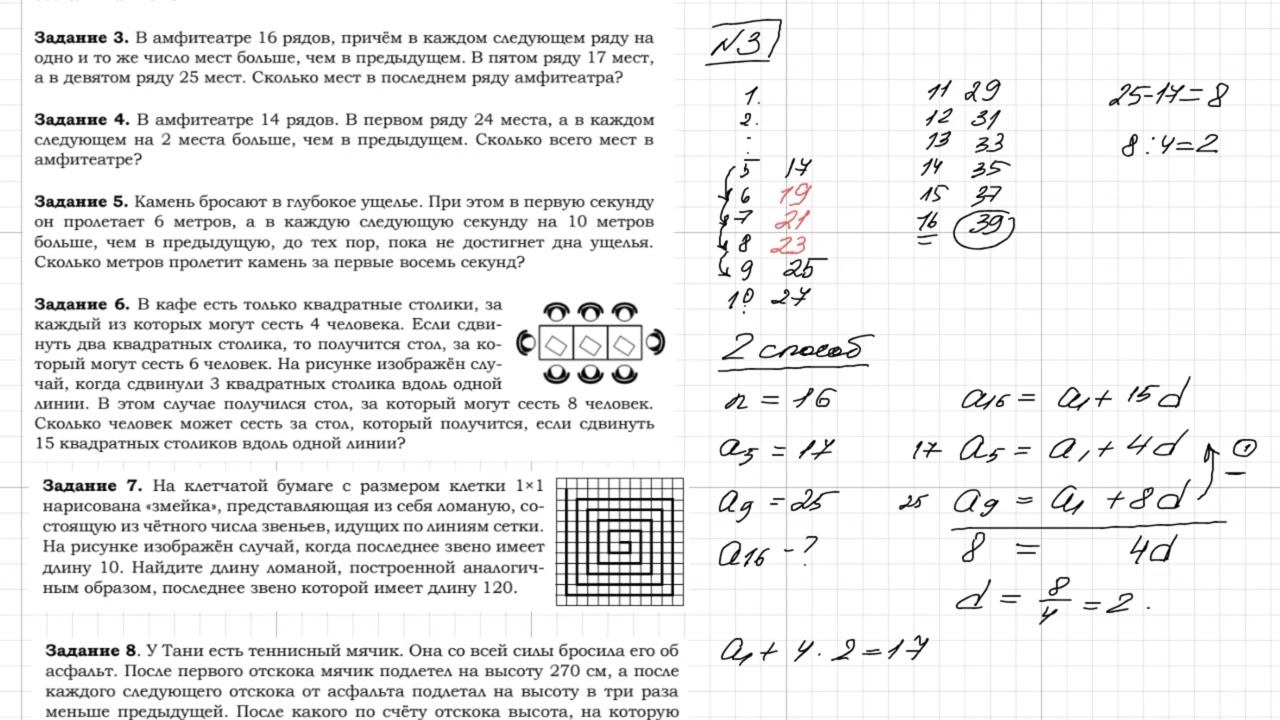 Задание 3. В амфитеатре 16 рядов, причём в каждом следующем ряду на
одно и то же число мест больше, чем в предыдущем. В пятом ряду 17 мест,
а в девятом ряду 25 мест. Сколько мест в последнем ряду амфитеатра?
Задание 4. В амфитеатре 14 рядов. В первом ряду 24 места, а в каждом
следующем на 2 места больше, чем в предыдущем. Сколько всего мест в
амфитеатре?
Задание 5. Камень бросают в глубокое ущелье. При этом в первую секунду
он пролетает 6 метров, а в каждую следующую секунду на 10 метров
больше, чем в предыдущую, до тех пор, пока не достигнет дна ущелья.
Сколько метров пролетит камень за первые восемь секунд?
Задание 6. В кафе есть только квадратные столики, за
каждый из которых могут сесть 4 человека. Если сдви-
нуть два квадратных столика, то получится стол, за ко-
торый могут сесть 6 человек. На рисунке изображён слу-
чай, когда сдвинули 3 квадратных столика вдоль одной
линии. В этом случае получился стол, за который могут сесть 8 человек.
Сколько человек может сесть за стол, который получится, если сдвинуть
15 квадратных столиков вдоль одной линии?
Задание 7. На клетчатой бумаге с размером клетки 1×1
нарисована «змейка», представляющая из себя ломаную, со-
стоящую из чётного числа звеньев, идущих по линиям сетки.
На рисунке изображён случай, когда последнее звено имеет
длину 10. Найдите длину ломаной, построенной аналогич-
ным образом, последнее звено которой имеет длину 120.
Задание 8. У Тани есть теннисный мячик. Она со всей силы бросила его об
асфальт. После первого отскока мячик подлетел на высоту 270 см, а после
каждого следующего отскока от асфальта подлетал на высоту в три раза
меньше предыдущей. После какого по счёту отскока высота, на которую
№3
1.
2.
:
5 17
6 19
7 21
8 23
9 25
10 27
11 29
12 31
13 33
14 35
15 37
16 39
25-17=8
8:4=2
2 способ
n = 16
a5 = 17
a9 = 25
a16 - ?
a1 + 4·2=17
a16 = a1 + 15d
17 a5 = a1 + 4d
25 a9 = a1 + 8d
8 = 4d
d = 8/4 = 2.